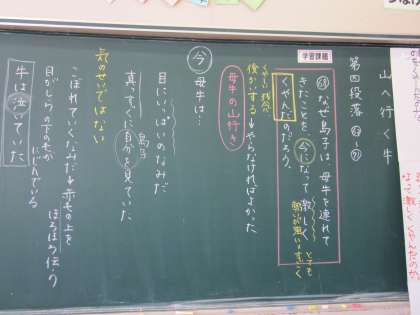 山へ行く牛
第四段落
学習課題
なぜ島子は、母牛を連れて
きたことを、今になって激しく
くやんだのだろう。
とても
勢いが強い すごく
くやむ 残念
後かいする やらなければよかった
母牛の山行き
今
母牛は…
目にいっぱいのなみだ
島子
真っすぐに自分を見ていた
気のせいではない
こぼれていくなみだ 赤毛の上を
ほろほろ伝う
目がしらの下の毛が
にじんでいる
牛は泣いていた